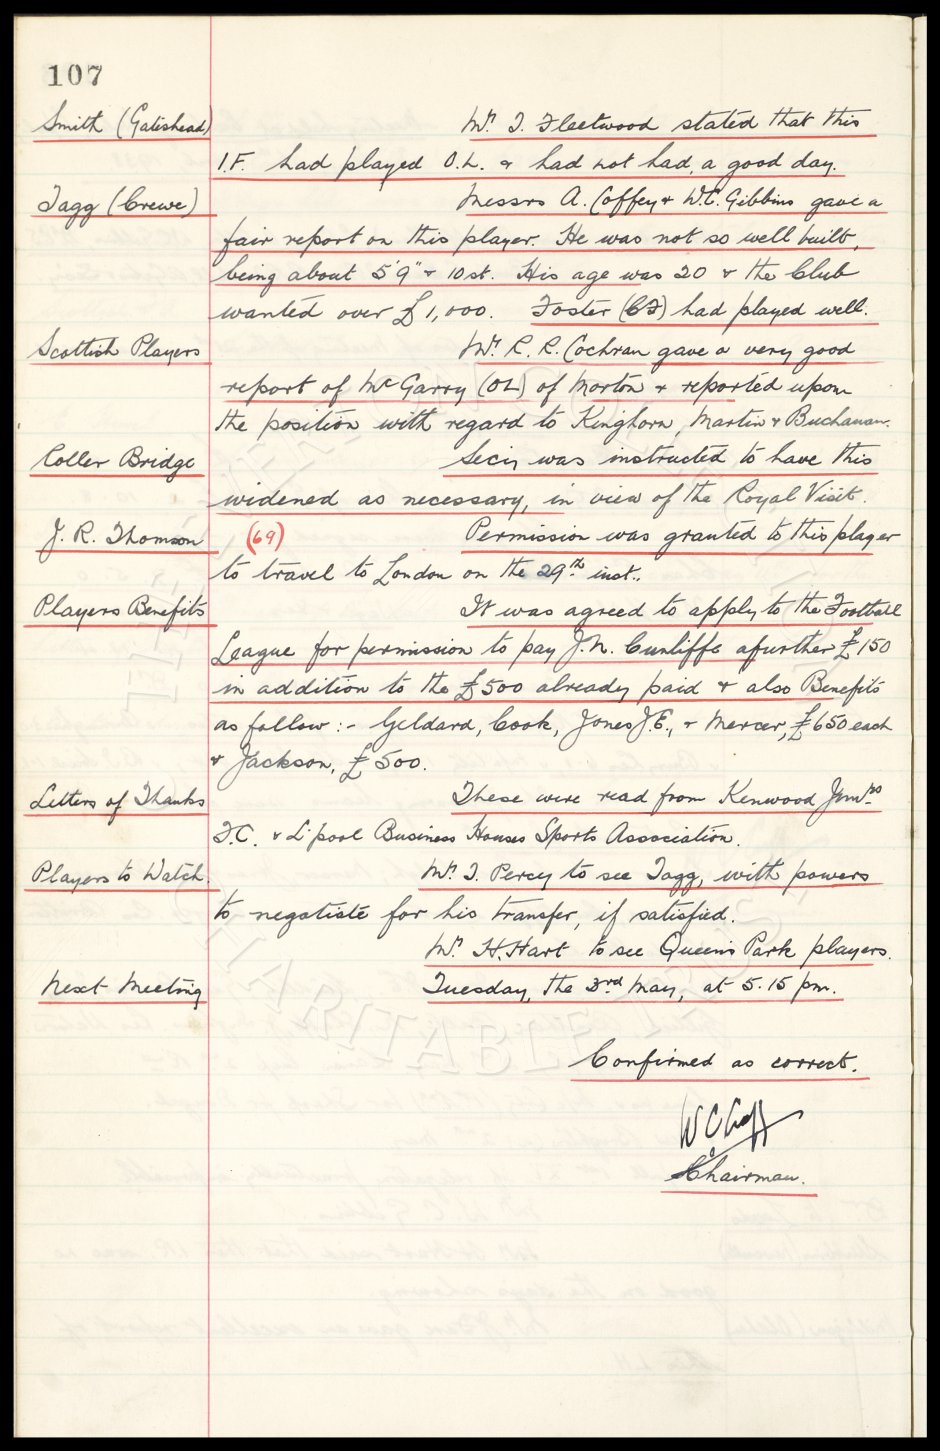 107
Smith (Gateshead) Mr. T. Fleetwood stated that this
I.F. had played O.L. & had not had a good day.
Tagg (Crewe) Messrs A. Coffey & W.C. Gibbins gave a
fair report on this player. He was not so well built,
being about 5'9" & 10st. His age was 20 & the Club
wanted over £1,000. Foster (CF) had played well.
Scottish Players Mr. R. R. Cochran gave a very good
report of McGarry (OL) of Morton & reported upon
the position with regard to Kinghorn, Martin & Buchanan.
Coller Bridge Secy was instructed to have this
widened as necessary, in view of the Royal Visit.
J. R. Thomson (69) Permission was granted to this player
to travel to London on the 29th inst..
Players Benefits It was agreed to apply to the Football
League for permission to pay J.N. Cunliffe a further £150
in addition to the £500 already paid & also Benefits
as follow:- Geldard, Cook, Jones J.E., & Mercer, £650 each
& Jackson, £500.
Letters of Thanks These were read from Kenwood Jnrs
F.C. & L'pool Business Houses Sports Association.
Players to Watch. Mr. T. Percy to see Tagg, with powers
to negotiate for his transfer, if satisfied.
Mr. H. Hart to see Queen's Park players.
Next Meeting Tuesday, the 3rd May, at 5.15 pm.
Confirmed as correct.
W C Cuff
Chairman.
CHARITABLE